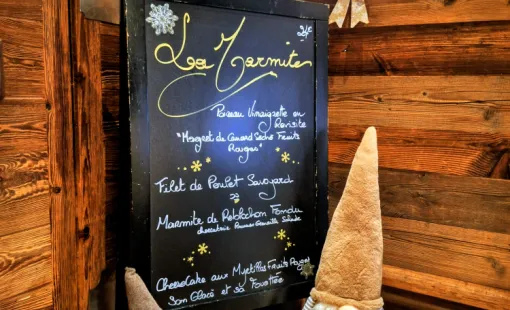 La Marmite
24€
Poireau Vinaigrette en
Revisite
"Magret de Canard Séché Fruits
Rouges"
Filet de Poulet Savoyard
Marmite de Reblochon Fondu
charcuterie Pommes Grenaille Salade
Cheesecake aux Myrtilles Fruits Rouges
Son Glacé et sa